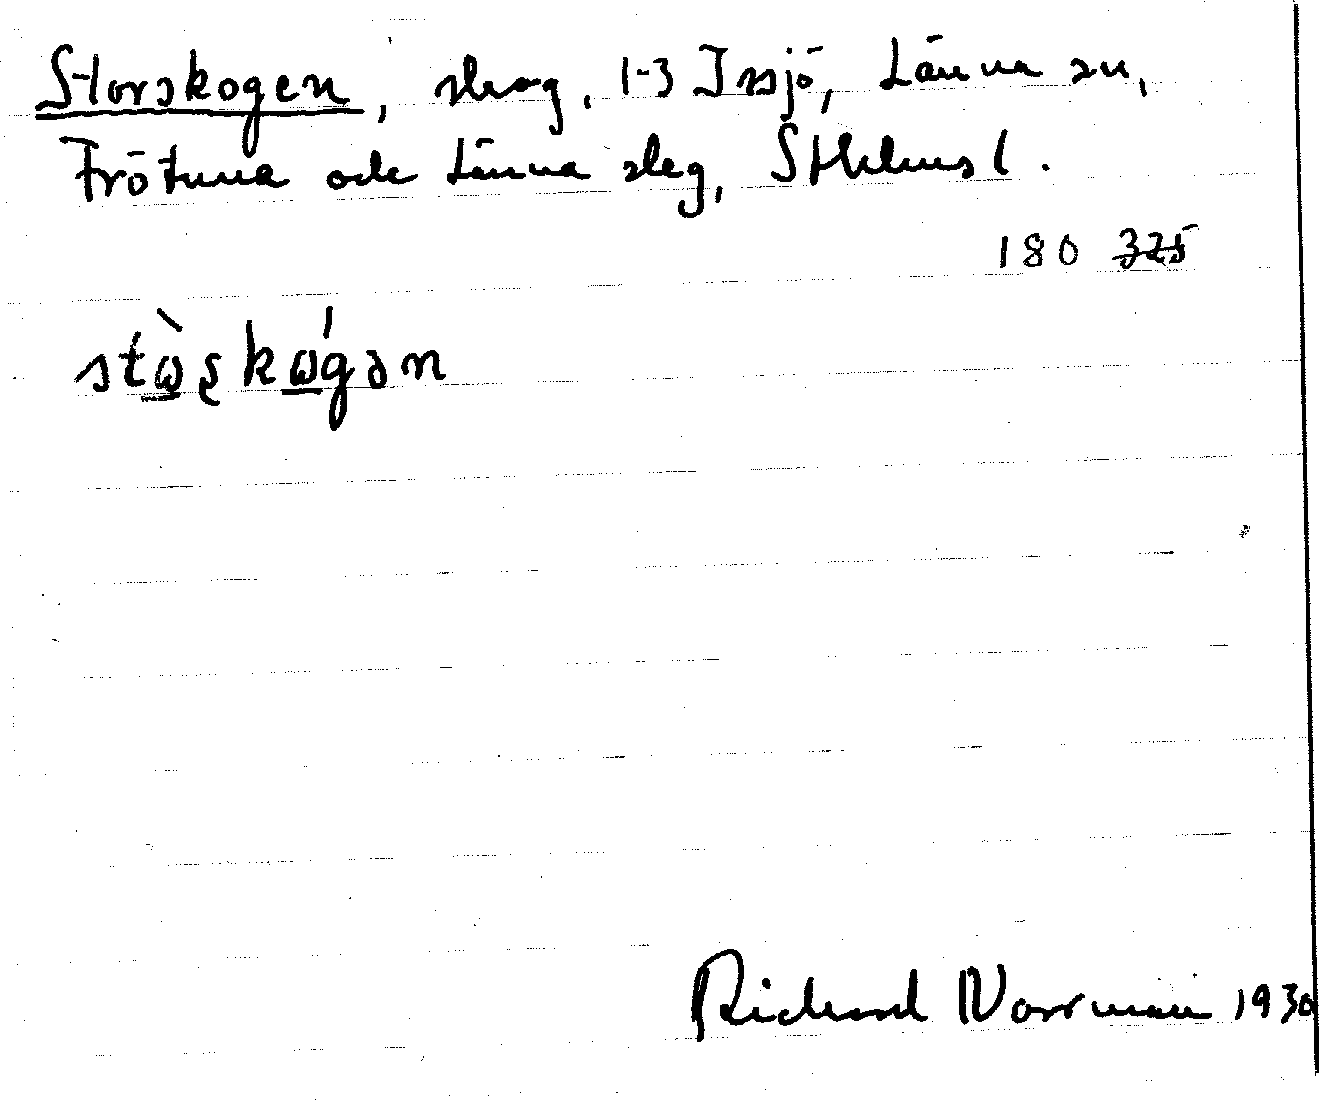 Storskogen, skog, 1-3 Issjö, Länna sn,
Frötuna och Länna slag, Sthlms l.
180 325
stὼ̲ʂkώ̲gən
Richard Norrman 1930